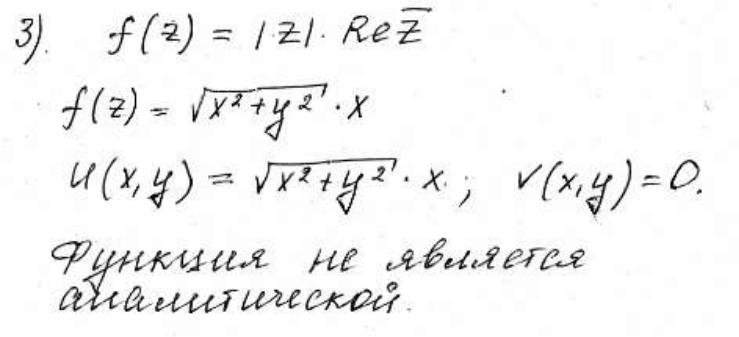 3). f(z) = |z|· Re z̅
f(z) = √(x²+y²) · x
u(x,y) = √(x²+y²) · x. ; v(x,y)=0.
Функция не является
аналитической.